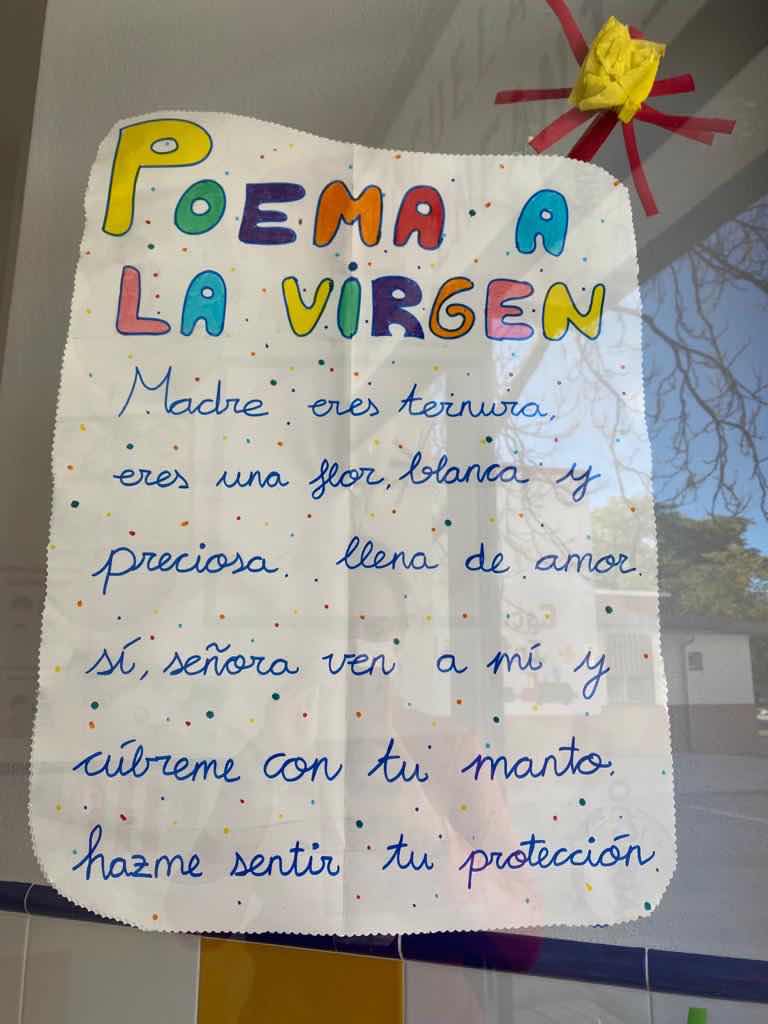 POEMA A
LA VIRGEN
Madre eres ternura,
eres una flor, blanca y
preciosa. llena de amor.
sí, señora ven a mí y
cúbreme con tu manto.
hazme sentir tu protección